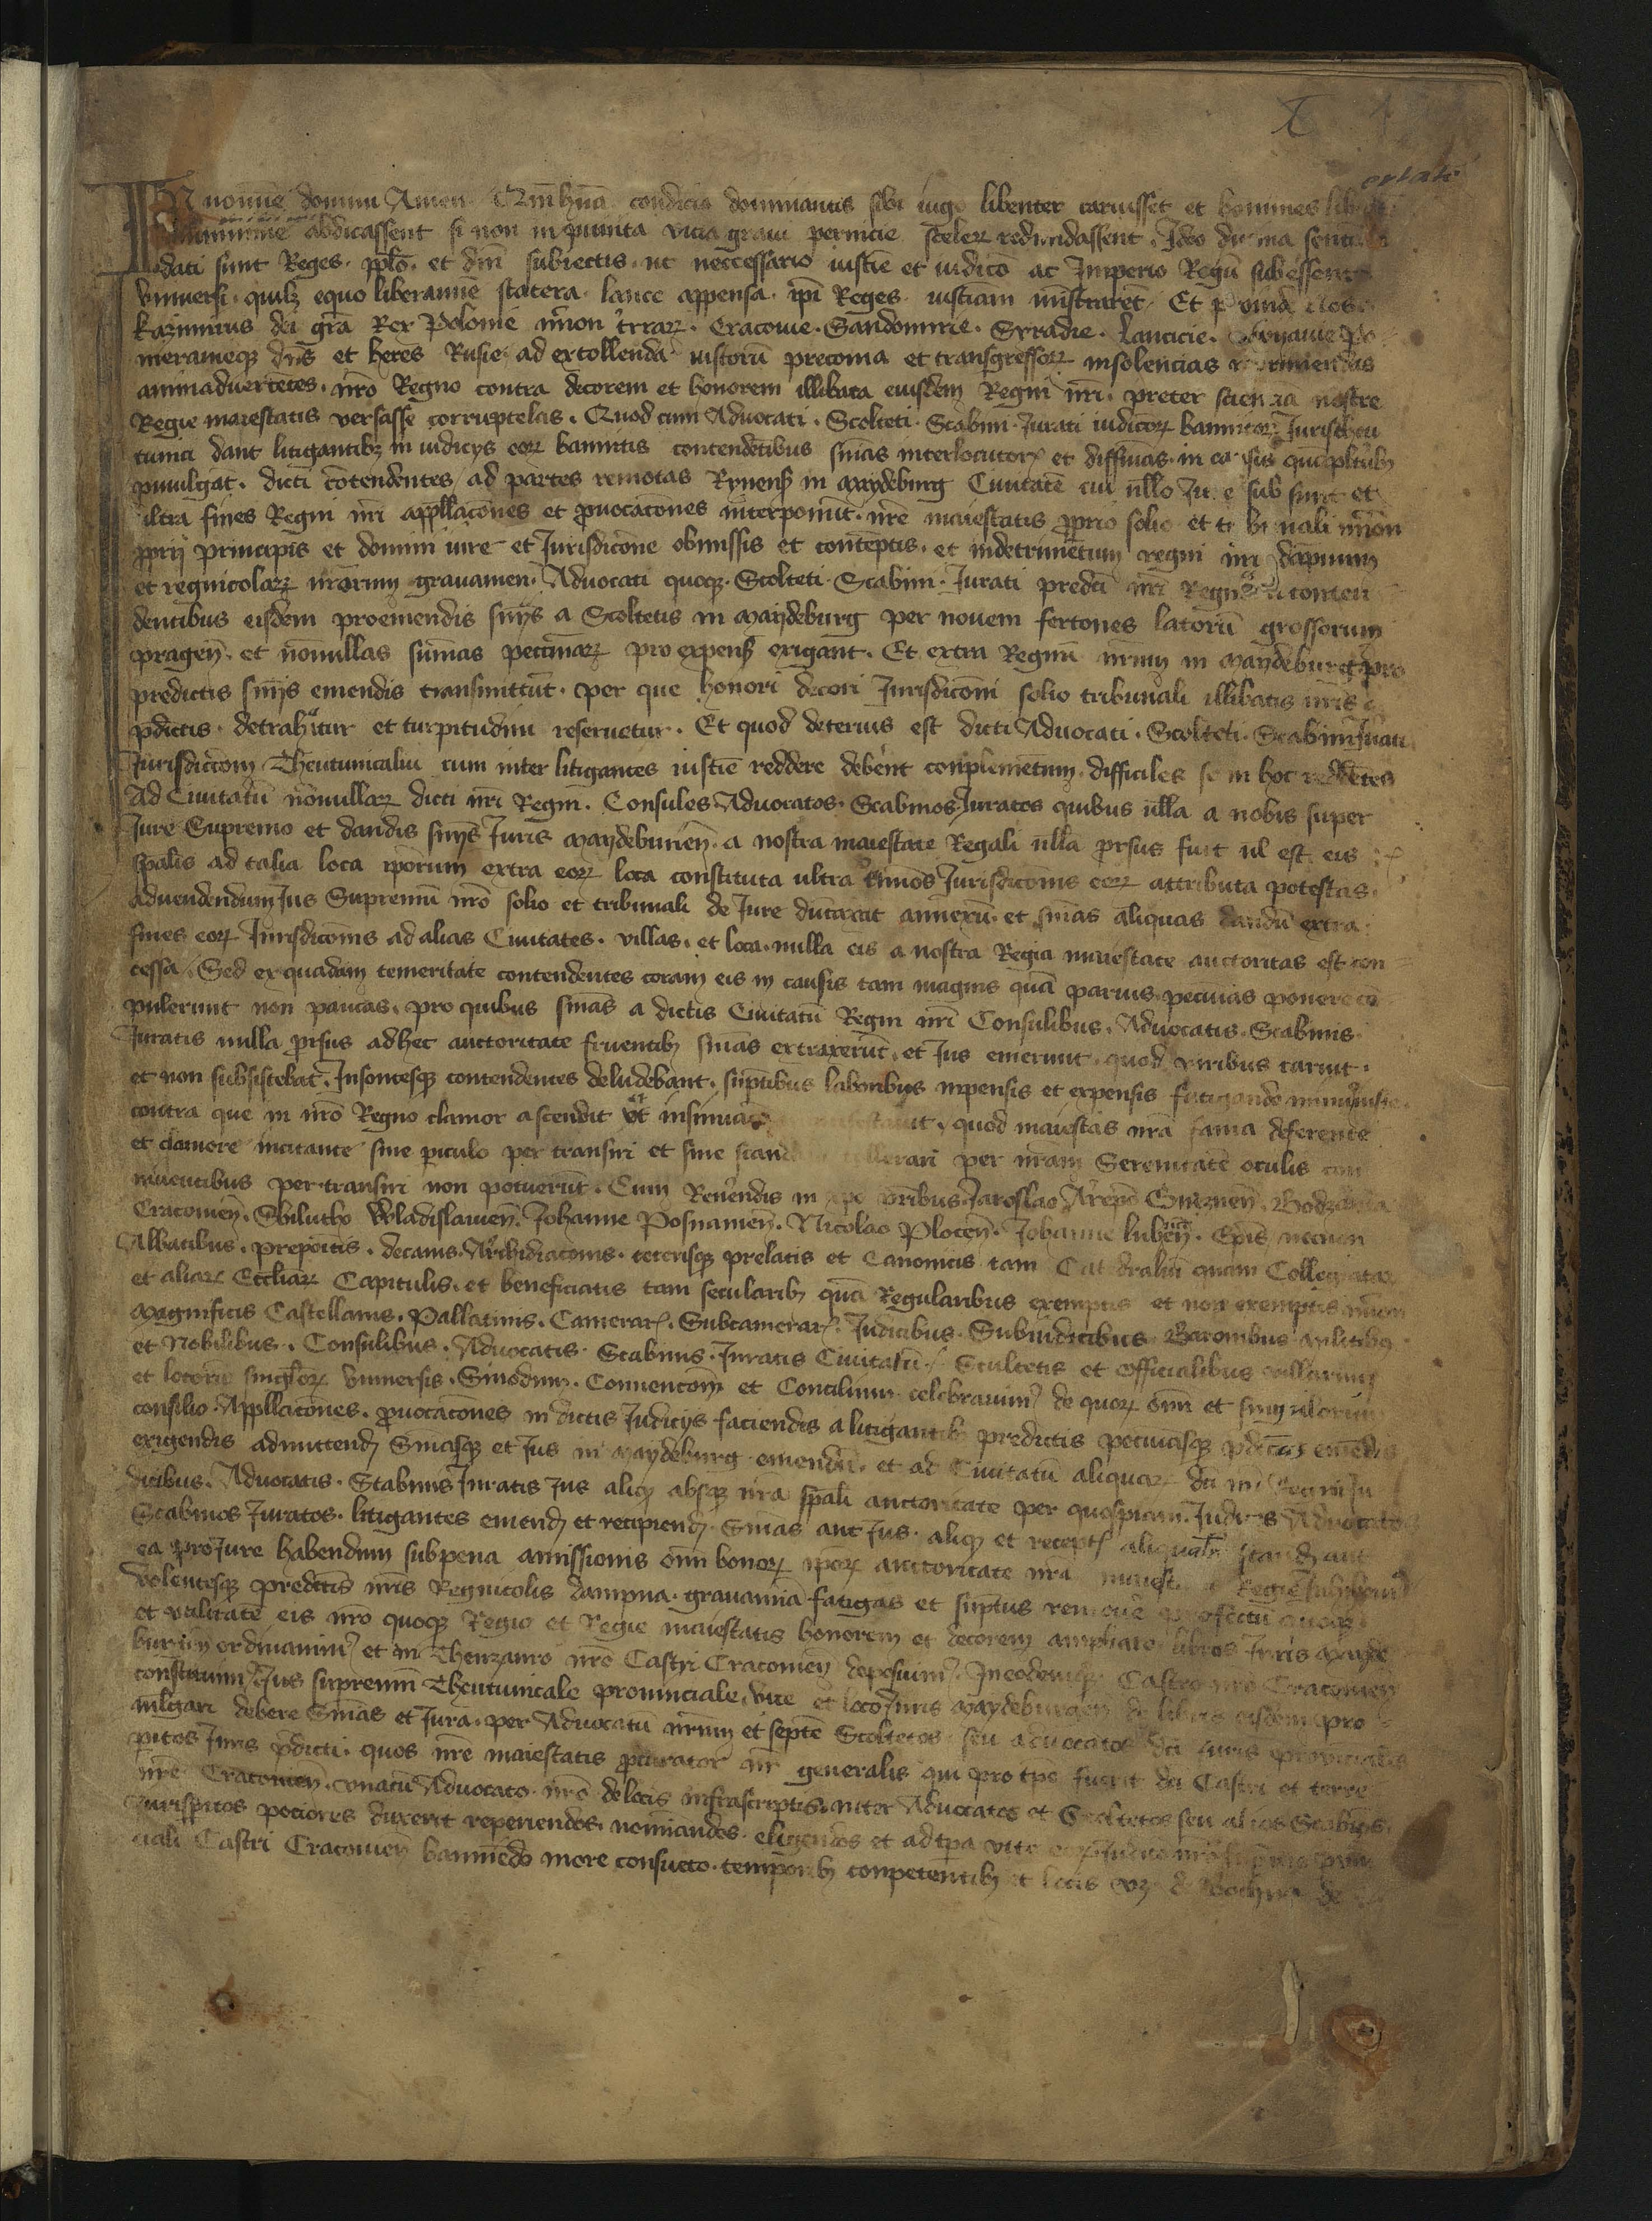 ertate
IN nomine domini Amen Quīhūna condicia dominantis sibi iugo libenter caruisset et homines
minime abdicassent si non inpunita vicia graui pernicie sceleꝝ redundassent. Ideo diuina
dati sunt Reges. et dm̄i subiectis. ut neccessario iusticie et iudico ac Imperio Regū subessent
vniuersi. quilꝫ equo liberamine statera. lance appensa. ip̄i Reges iusticiam ministrarēt Et
Kazimirus dei gra Rex Polonie nc̄non trraꝝ. Cracouie. Sandomirie. Syradie. Lancicie. Cuyauie Po
meranieqꝫ dn̄s et heres Rusie ad extollenda iustorū preconia et transgressoꝝ insolencias
animaduertētes. nr̄o Regno contra decorem et honorem illibata eiusdem Regni nr̄i. preter sciencia nostre
Regie maiestatis versasse corruptelas. Quod cum Aduocati. Scolteti. Scabini. Jurati iudicioꝝ bannitoꝝ Juris theu
tunici dant litigantibꝫ in iudicijs eoꝝ bannitis contendētibus sn̄ias interlocutor et diffinias in causis
pmulgāt. dicti cōtendentes ad partes remotas Rynens in Maydeburg Ciuitatē cui nllo Jure sub sunt et
ultra fines Regni nr̄i appllacōnes et ꝓuocacōnes interponūt. nr̄e maiestatis ꝓprio solio et tribunali nc̄non
ꝓprij principis et domini iure et Jurisdicōne obmissis et contēptis. et indetrimētum regni nr̄i dāpnum
et regnicolaꝝ nr̄orum grauamen. Aduocati quoqꝫ. Scolteti. Scabini. Jurati predc̄i nr̄i Regni conten
dentibus eisdem proemendis sn̄ijs a Scoltetis in Maydeburg per nouem fertones latorū grossorum
pragen̄. et nōnullas sum̄as pecūiaꝝ pro expens̄ exigant. Et extra Regnū nr̄um in Maydeburg pro
predictis sn̄ijs emendis transmittūt. per que honori decori Jurisdicōni solio tribunali illibatis nr̄is
pdictis. detrahitur et turpitudini reseruetur. Et quod deterius est dicti Aduocati. Scolteti. Scabini Jurati
Jurisdiccōnū Theutunicaliū cum inter litigantes iusticie reddere debent conplemētum. difficiles se in hoc reddētes
Ad Ciuitatū nōnullaꝝ dicti nr̄i Regni. Consules Aduocatos. Scabinos. Juratos quibus nlla a nobis super
Jure Supremo et dandis sn̄ijs Juris Maydeburien̄. a nostra maiestate Regali nlla prsus fuit ul est eis
spalis ad talia loca ip̄orum extra eoꝝ loca constituta ultra limōs Jurisdicōnis eoꝝ attributa potestas.
Aduendendum Jus Supremū nr̄o solio et tribunali de Jure dūtaxat annexū et sn̄ias aliquas dandū extra
fines eoꝝ Jurisdicōnis ad alias Ciuitates. villas. et loca. nulla eis a nostra Regia maiestate auctoritas est con
cessa. Sed ex quadam temeritate contendentes coram eis in causis tam magnis quā paruis pecunias ponere cō
pulerunt non paucas. pro quibus sn̄ias a dictis Ciuitatū Regni nr̄i Consulibus. Aduocatis. Scabinis
Juratis nulla prsus adhec auctoritate fruentibꝫ sn̄ias extraxerūt. et Jus emerunt. quod viribus caruit.
et non subsistebat. Insontesqꝫ contendentes deludebant. sūptibus laboribus inpensis et expensis fatigando
contra que in nr̄o Regno clamor ascendit ut insinuacō quod maiestas nr̄a fama deferente
et clamore incitante sine piculo per transiri et sine scandalo tollerari per nr̄am Serenitatē oculis con
niuentibus per transiri non potuerūt. Cum Reuendis in xpo pr̄ibus. Jaroslao Arepō Gneznen̄. Bodzanta
Cracouien̄. Sbilutho Wladislauien̄. Johanne Posnanien̄. Nicolao Plocen̄. Johanne lubucen̄. Epis necnon
Abbatibus. prepoitis. decanis. Archidiaconis. ceterisqꝫ prelatis et Canonicis tam Catedraliū quam Collegiataꝝ
et aliaꝝ Eccliaꝝ Capitulis. et beneficiatis tam secularibꝫ quā Regularibus exemptis et non exemptis nc̄non
Magnificis Castellanis. Pallatinis. Camerar. Subcamerar. Judicibus. Subiudicibus Baronibus militibꝫ
et Nobilibus. Consulibus. Aduocatis. Scabinis. Juratis Ciuitatū. Scultetis et officialibus villarum
et locorū singloꝝ vniuersis. Sinodum. Conuencōm et Concilium celebrauim de quoꝝ om̄i et singulorum
consilio. Appllacōnes. prouocacōnes in dictis Judicijs faciendis a litigantibꝫ predictis pecunijsqꝫ pdictis emēdis
exigendis admittendꝫ Sn̄iasqꝫ et Jus in Maydeburg emendū. et ad Ciuitatū aliquaꝝ dci nr̄i Regni Ju
dicibus. Aduocatis. Scabinis Juratis Jus aliqꝫ absqꝫ nr̄a spāli auctoritate per quospiam. Judices Aduocatos
Scabinos Juratos. litigantes emendꝫ et recipiendꝫ Sn̄ias aut Jus. aliqꝫ et recept aliqualr̄ standꝫ aut
ea pro Jure habendum subpena amissionis om̄i bonoꝝ ip̄oꝝ auctoritate nr̄a maiestatis Regie
Volentesqꝫ predictis nr̄is Regnicolis dampna. grauamina fatigas et sūptus remoue profectū quoqꝫ
et vtilitatē eis nr̄o quoqꝫ Regno et Regie maiestatis honorem et decorem ampliare libros Juris Mayde
burien̄ ordinauim et in Thenzauro nr̄o Castri Cracouien̄ deposuim. Ineodemqꝫ Castro nr̄o Cracouien̄
constituim Jus supremū Theutunicale prouinciale. vice et loco Juris Maydeburgen̄ de libris eisdem pro
mlgari debere Sn̄ias et Jura. per Aduocatū nr̄um et septē Scoltetos seu aduocatos dci Juris prouincialis
pitos Juris pdicti. quos nr̄e maiestatis procurator nr̄ generalis qui pro tpe fuerit dci Castri et terre
nr̄e Cracouien̄. vnacū Aduocato nr̄o delocis infrascriptis. inter Aduocatos et Scoltetos seu alios Scabinos
Jurispitos pociores duxerit reperiendos. nominandos. eligendos et ad tpa vite
ciali Castri Cracouien̄ bannendo more consueto. temporibꝫ conpetentibꝫ et locis vꝫ de Bochnia de